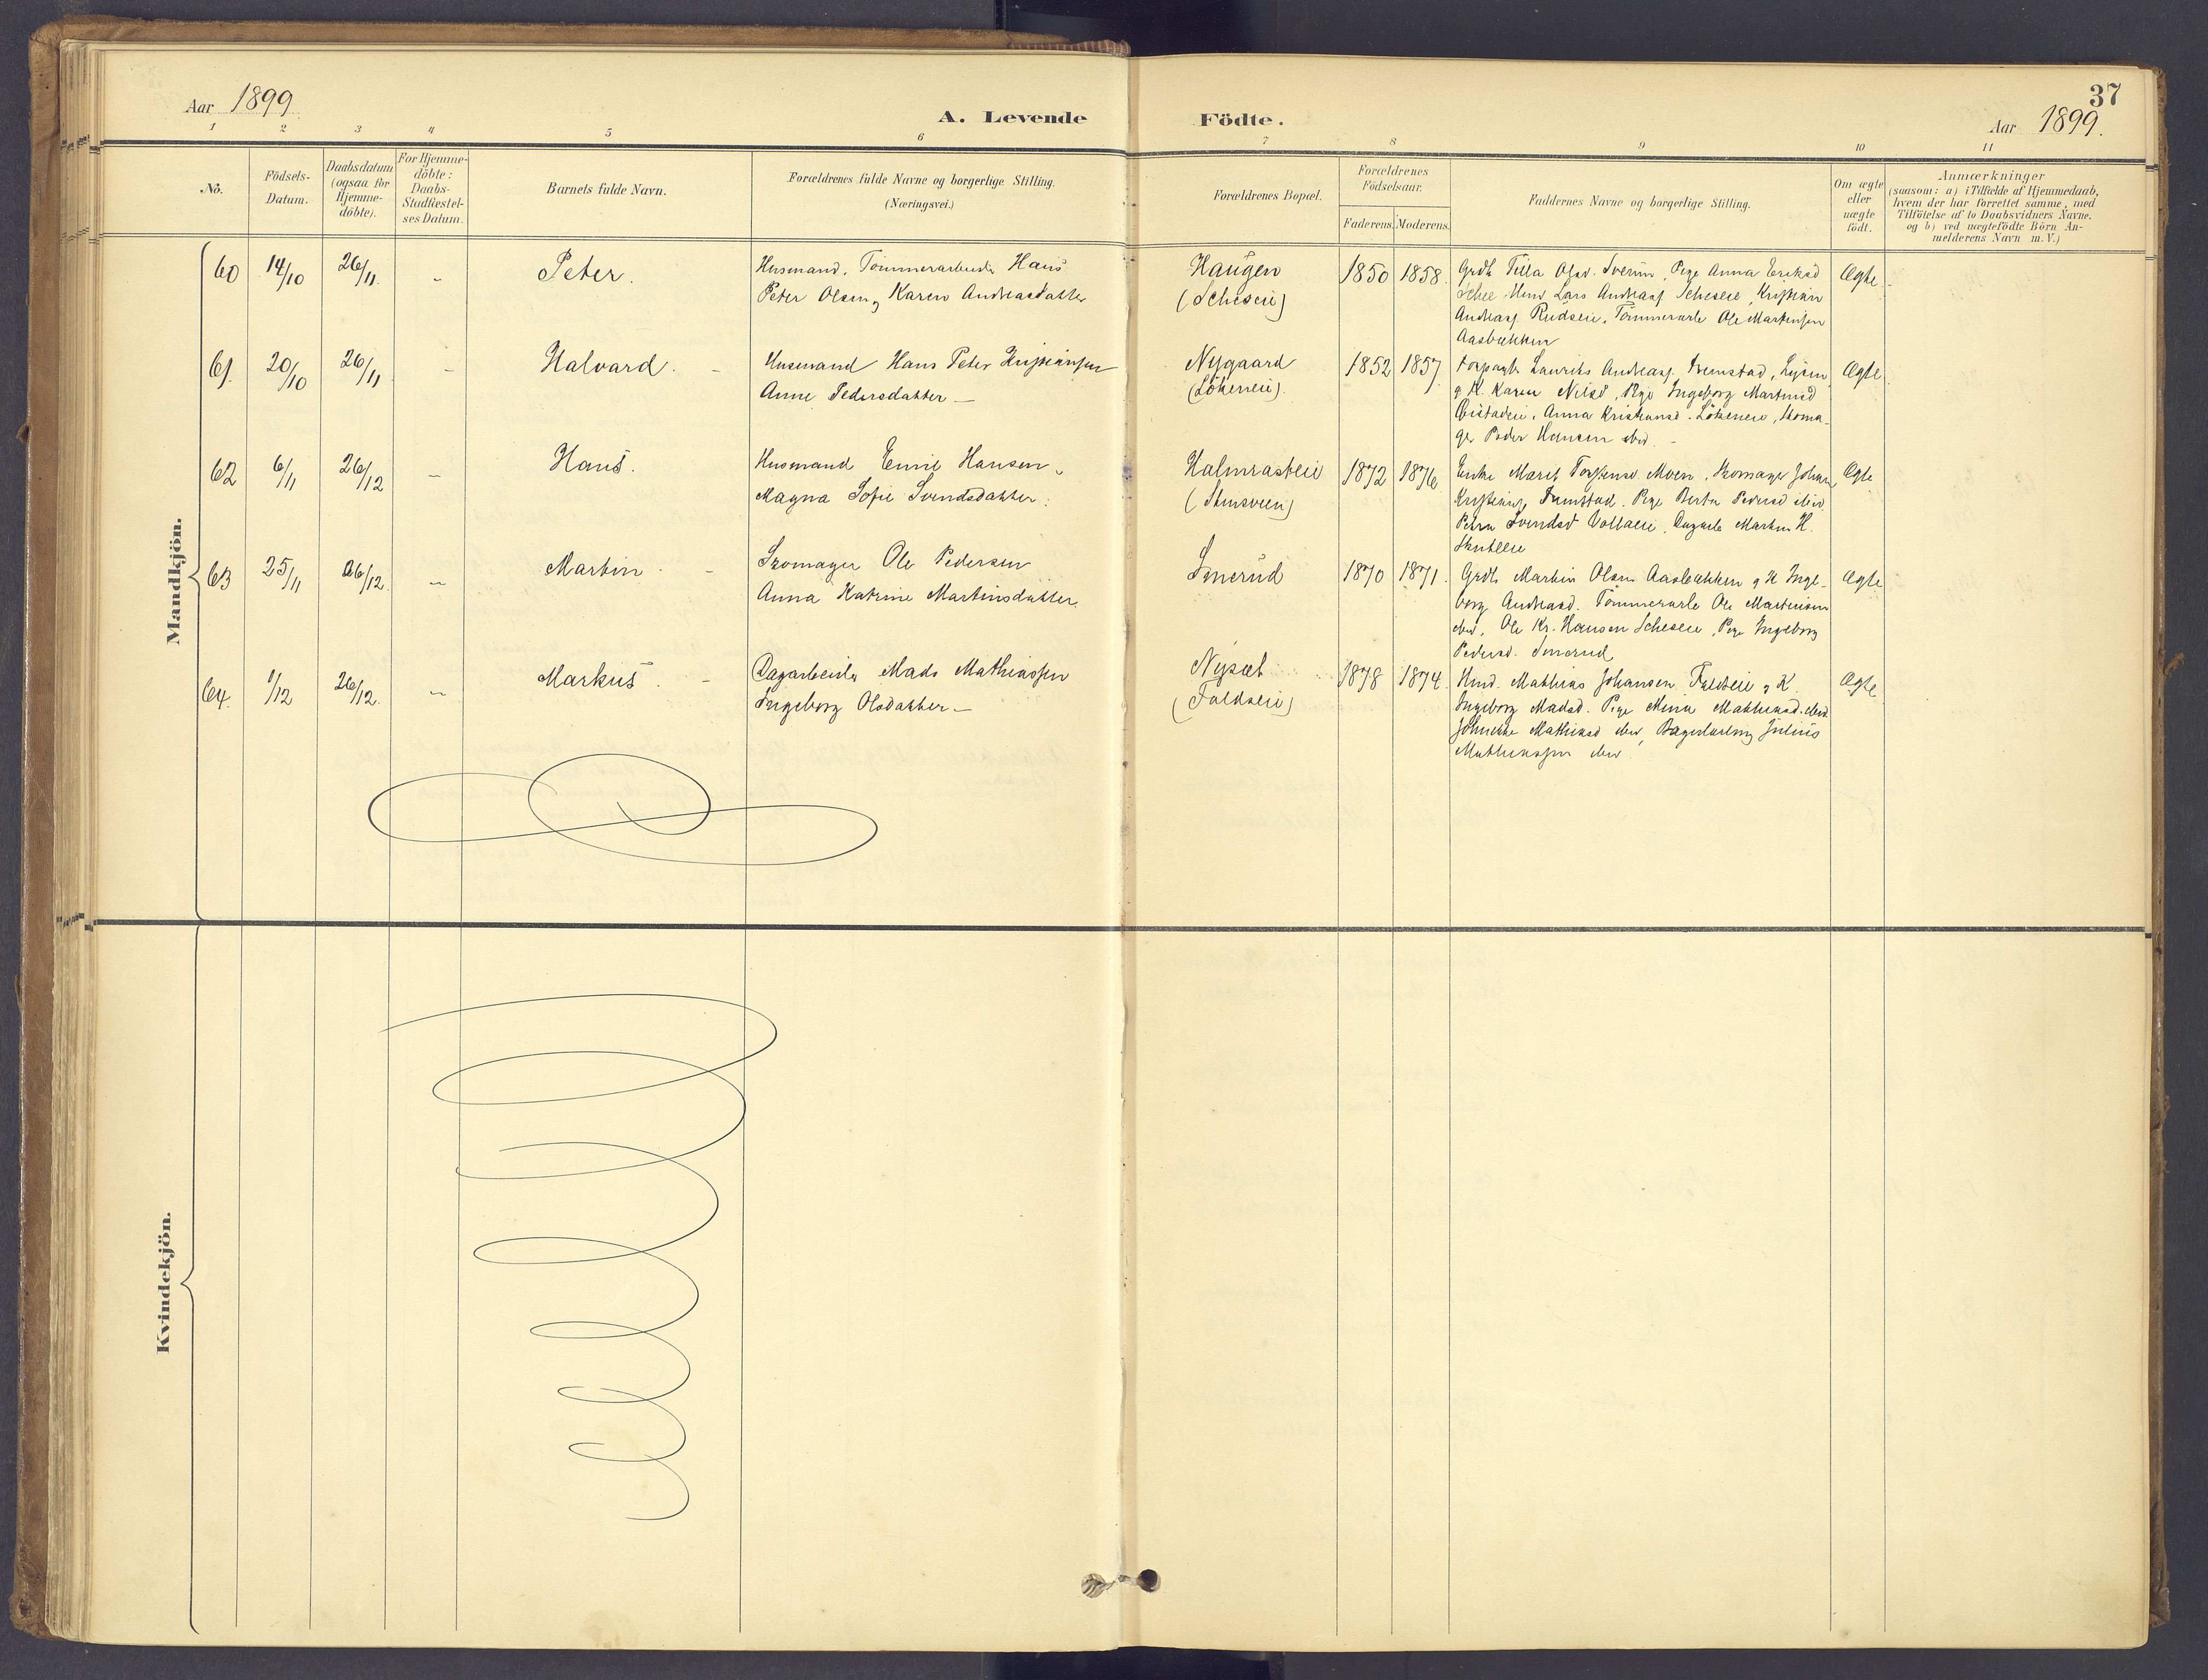 Aar 1899
A. Levende Födte.
37
Aar 1899.
1 2 3 4 5 6 7 8 9 10 11
No.
Födsels-
Datum.
Daabsdatum
(ogsaa for
Hjemme-
döbte).
For Hjemme-
döbte:
Daabs-
Stadfæstel-
ses Datum.
Barnets fulde Navn.
Forældrenes fulde Navne og borgerlige Stilling.
(Næringsvei.)
Forældrenes Bopæl.
Forældrenes
Födselsaar.
Faderens. Moderens.
Faddernes Navne og borgerlige Stilling.
Om ægte
eller
uægte
födt.
Anmærkninger
(saasom: a) i Tilfælde af Hjemmedaab,
hvem der har forrettet samme, med
Tilföielse af to Daabsvidners Navne.
og b) ved uægtefödte Börn An-
melderens Navn m. V.)
Mandkjön.
60 14/10 26/11. - Peter.
Husmand, Tömmerarbeider Hans
Peter Olsen og Karen Andreasdatter
Haugen
(Scheseie)
1850 1858.
Grdb. Olsd. Sverim, Pige Anna Eriksd
Schee Hmd Lars Andreass Scheseie, Kristian
Andreass Rudseie, Tömmerarb Ole Martinsen
Aasbakken
Ægte
61. 20/10 26/11 - Halvard. -
Husmand Hans Peter Kristiansen
Anne Pedersdatter -
Nygaard
(Lökeneie).
1852 1857.
Laurits Andreass.
g K. Karen Nilsd, Pige Ingeborg Martinsd
Anna Kristiansd. Lökeneie, Skoma-
ger Peder Hansen ibid. -
Ægte
62 6/11 26/12 - Hans.
Husmand Emil Hansen,
Magna Sofie Svendsdatter.
Halmrasteie
1872 1876
Enke Marit Moen, Skomager Johan
Pige Berta Pedersd ibid.
Petra Svendsd Martin H.
Ægte
63 25/11 26/12. - Martin. -
Skomager Ole Pedersen
Anna Katrine Martinsdatter.
Smerud
1870 1871.
Grdb. Martin Olsen Aasbakken g K Inge-
borg Andreasd. Tömmerarb Ole Martinsen
ibid, Ole Kr. Hansen Scheseie, Pige Ingeborg
Pedersd. Smerud
Ægte
64. 1/12 26/12. - Markus. -
Dagarbeider Mads Mathiassen
Ingeborg Olsdatter -
Nysæt
(Faldseie)
1878 1874.
Hmd. Mathias Johansen Faldseie g K.
Ingeborg Madsd. Pige Mina Mathiasd. ibid.
Mathiasd ibid, Julius
Mathiassen ibid
Ægte
Kvindekjön.